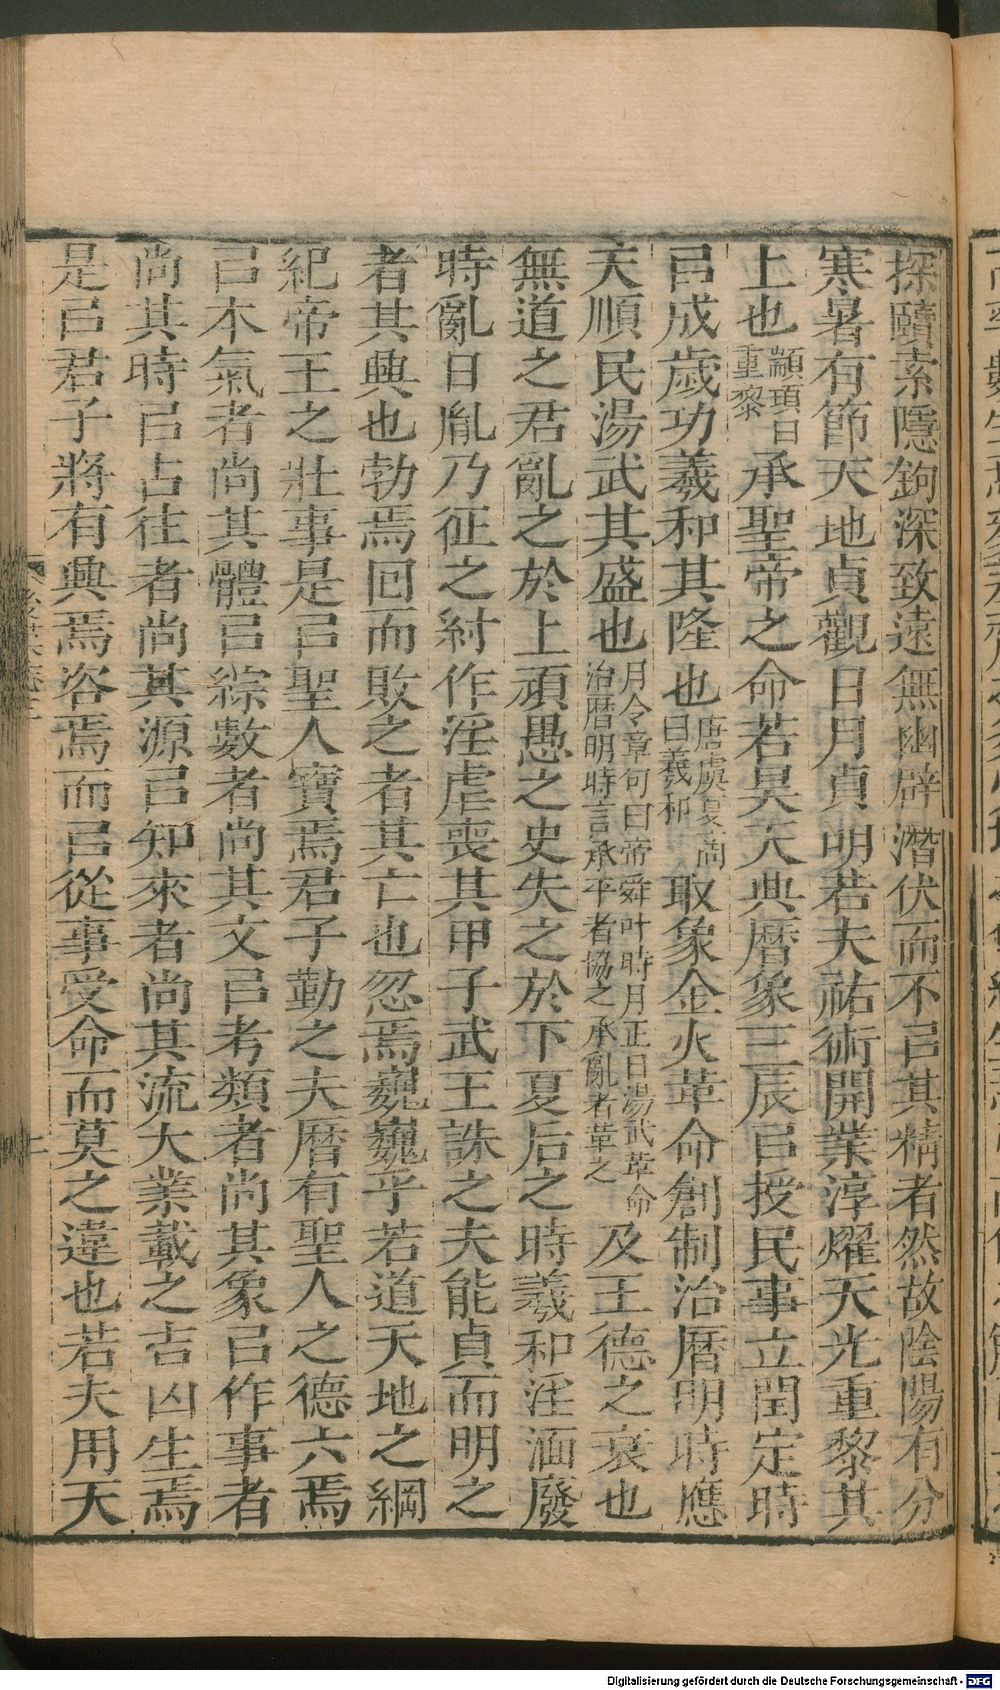 探賾索隱鉤深致遠無幽辟潛伏而不㠯其精者然故陰陽有分
寒暑有節天地貞觀日月貞明若夫祐術開業淳燿天光重黎其
上也顓頊曰重黎承聖帝之命若昊天典曆象三辰㠯授民事立閏定時
㠯成歲功羲和其隆也唐虞夏商曰羲和取象金火革命創制治曆明時應
天順民湯武其盛也月令章句曰帝舜叶時月正日湯武革命治曆明時言承平者協之承亂者革之及王德之衰也
無道之君亂之於上頑愚之史失之於下夏后之時羲和淫湎廢
時亂日胤乃征之紂作淫虐喪其甲子武王誅之夫能貞而明之
者其興也勃焉回而敗之者其亡也忽焉巍巍乎若道天地之綱
紀帝王之壯事是㠯聖人寶焉君子勤之夫曆有聖人之德六焉
㠯本氣者尚其體㠯綜數者尚其文㠯考類者尚其象㠯作事者
尚其時㠯占往者尚其源㠯知來者尚其流大業載之吉凶生焉
是㠯君子將有興焉咨焉而㠯從事受命而莫之違也若夫用天
Digitalisierung gefördert durch die Deutsche Forschungsgemeinschaft - DFG